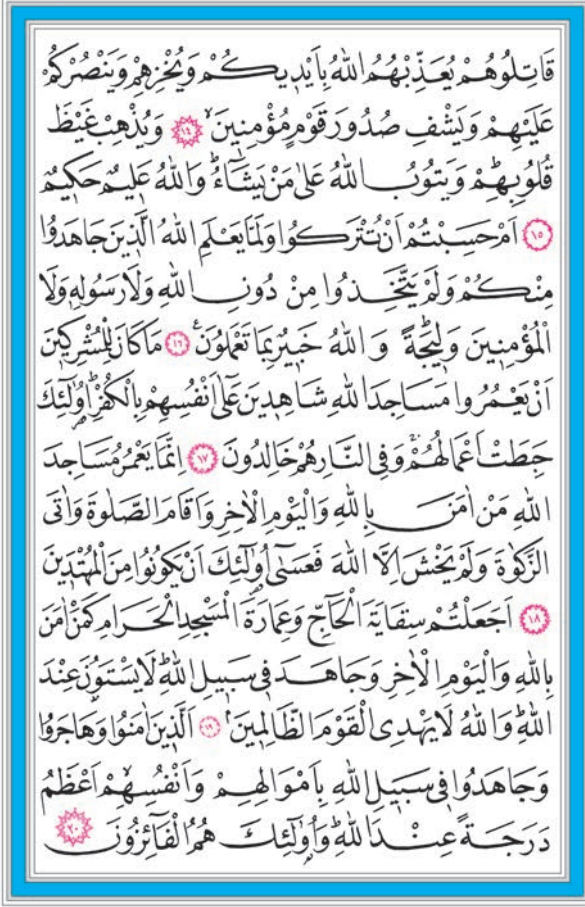 قَاتِلُوهُمْ يُعَذِّبْهُمُ اللّٰهُ بِاَيْدٖيكُمْ وَيُخْزِهِمْ وَيَنْصُرْكُمْ
عَلَيْهِمْ وَيَشْفِ صُدُورَ قَوْمٍ مُؤْمِنٖينَۙ ﴿١٤﴾ وَيُذْهِبْ غَيْظَ
قُلُوبِهِمْۜ وَيَتُوبُ اللّٰهُ عَلٰى مَنْ يَشَٓاءُۜ وَاللّٰهُ عَلٖيمٌ حَكٖيمٌ
﴿١٥﴾ اَمْ حَسِبْتُمْ اَنْ تُتْرَكُوا وَلَمَّا يَعْلَمِ اللّٰهُ الَّذٖينَ جَاهَدُوا
مِنْكُمْ وَلَمْ يَتَّخِذُوا مِنْ دُونِ اللّٰهِ وَلَا رَسُولِهٖ وَلَا
الْمُؤْمِنٖينَ وَلٖيجَةًۜ وَاللّٰهُ خَبٖيرٌ بِمَا تَعْمَلُونَࣖ ﴿١٦﴾ مَا كَانَ لِلْمُشْرِكٖينَ
اَنْ يَعْمُرُوا مَسَاجِدَ اللّٰهِ شَاهِدٖينَ عَلٰٓى اَنْفُسِهِمْ بِالْكُفْرِۜ اُو۬لٰٓئِكَ
حَبِطَتْ اَعْمَالُهُمْۚ وَفِي النَّارِ هُمْ خَالِدُونَ ﴿١٧﴾ اِنَّمَا يَعْمُرُ مَسَاجِدَ
اللّٰهِ مَنْ اٰمَنَ بِاللّٰهِ وَالْيَوْمِ الْاٰخِرِ وَاَقَامَ الصَّلٰوةَ وَاٰتَى
الزَّكٰوةَ وَلَمْ يَخْشَ اِلَّا اللّٰهَ فَعَسٰٓى اُو۬لٰٓئِكَ اَنْ يَكُونُوا مِنَ الْمُهْتَدٖينَ
﴿١٨﴾ اَجَعَلْتُمْ سِقَايَةَ الْحَٓاجِّ وَعِمَارَةَ الْمَسْجِدِ الْحَرَامِ كَمَنْ اٰمَنَ
بِاللّٰهِ وَالْيَوْمِ الْاٰخِرِ وَجَاهَدَ فٖي سَبٖيلِ اللّٰهِۜ لَا يَسْتَوُ۫نَ عِنْدَ
اللّٰهِۜ وَاللّٰهُ لَا يَهْدِي الْقَوْمَ الظَّالِمٖينَۢ ﴿١٩﴾ اَلَّذٖينَ اٰمَنُوا وَهَاجَرُوا
وَجَاهَدُوا فٖي سَبٖيلِ اللّٰهِ بِاَمْوَالِهِمْ وَاَنْفُسِهِمْۙ اَعْظَمُ
دَرَجَةً عِنْدَ اللّٰهِۜ وَاُو۬لٰٓئِكَ هُمُ الْفَٓائِزُونَ ﴿٢٠﴾